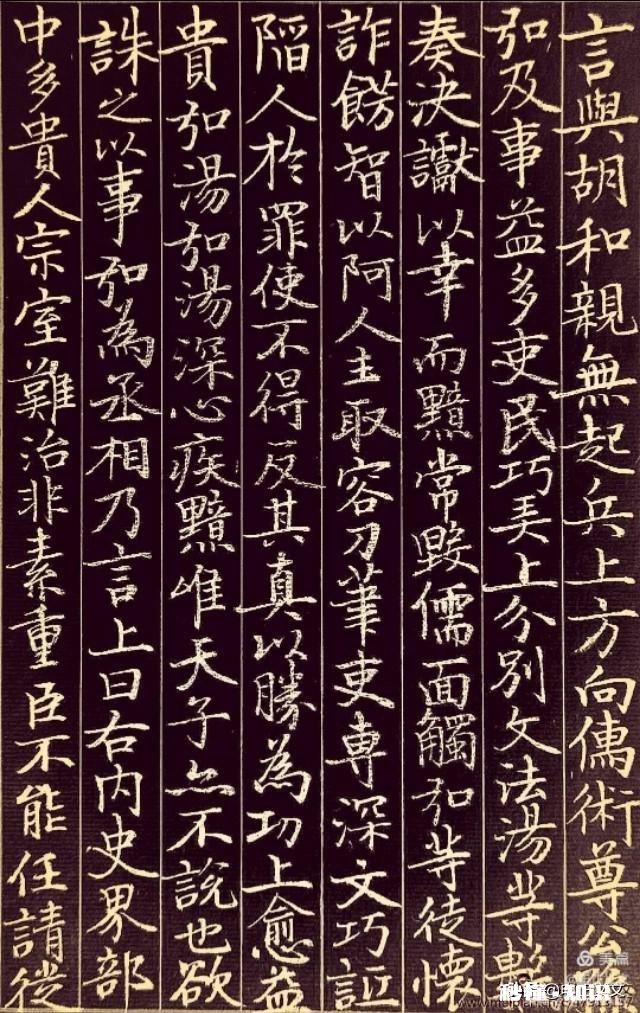 言與胡和親無起兵上方向儒術尊公孫
弘及事益多吏民巧弄上分別文法湯等數
奏決讞以幸而黯常毀儒面觸弘等徒懷
詐飾智以阿人主取容刀筆吏專深文巧詆
陷人於罪使不得反其真以勝為功上愈益
貴弘湯弘湯深心疾黯唯天子亦不說也欲
誅之以事弘為丞相乃言上曰右內史界部
中多貴人宗室難治非素重臣不能任請徙
美篇